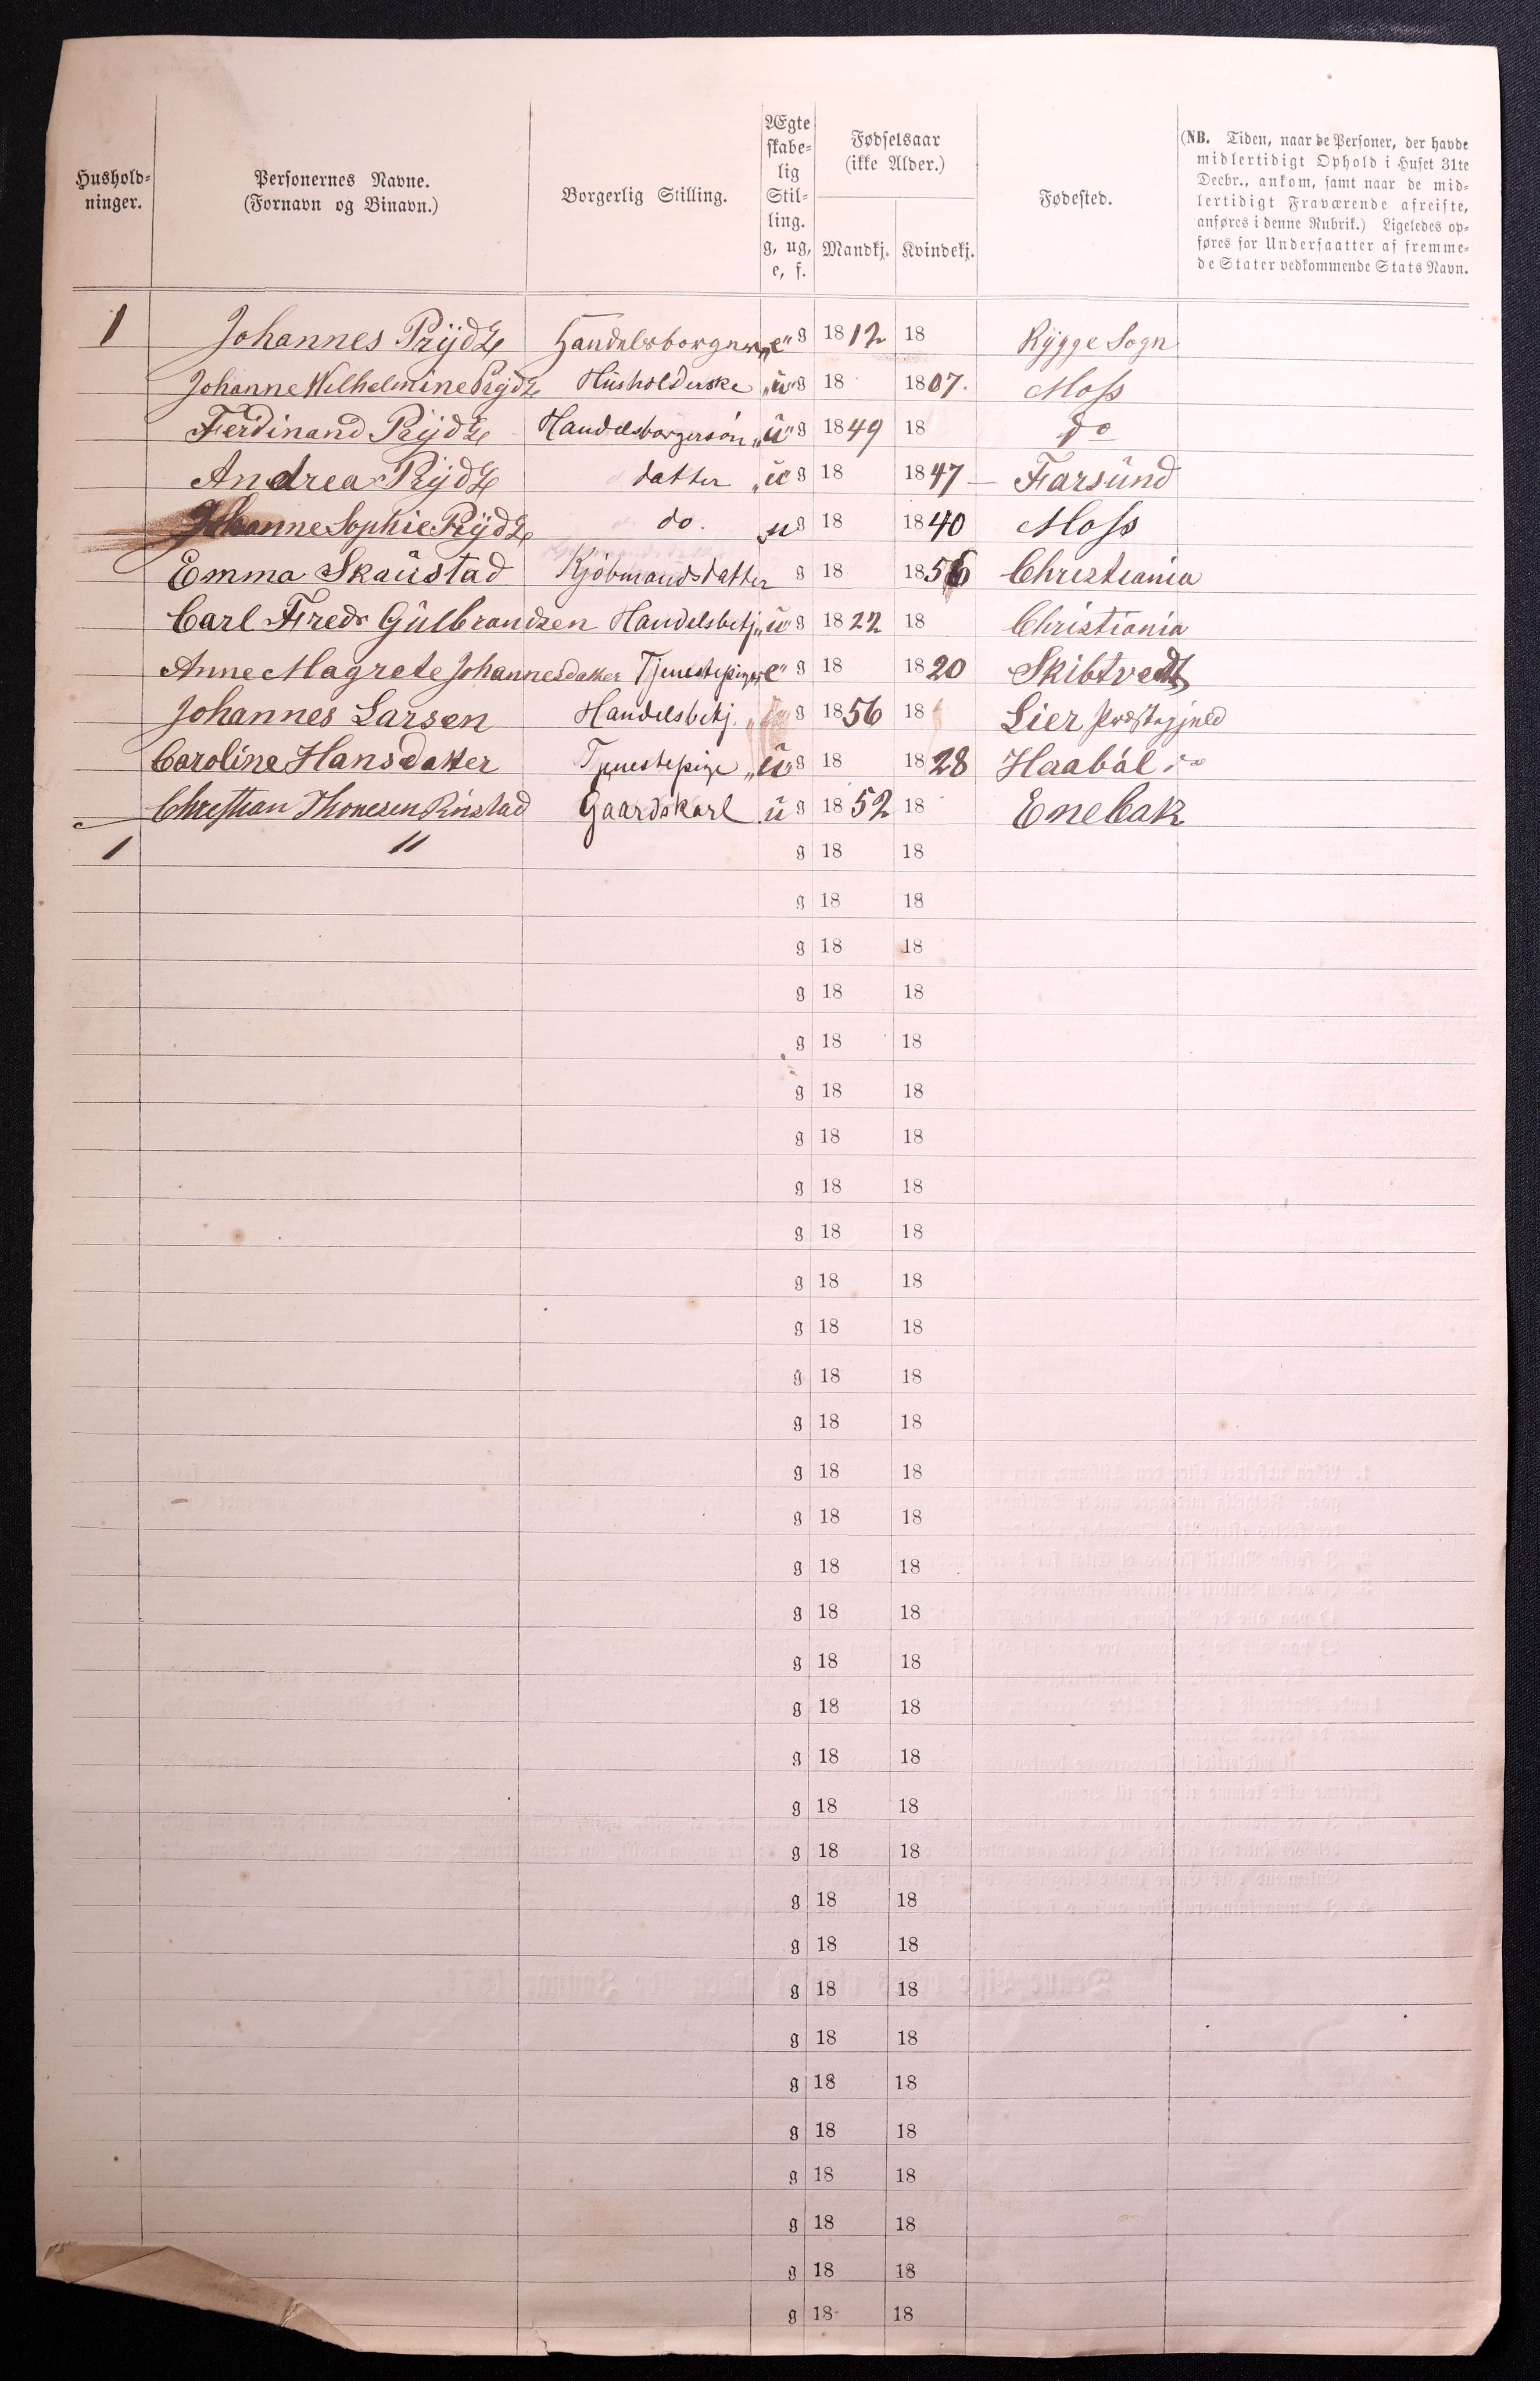 Hushold-
ninger.
Personernes Navne.
(Fornavn og Binavn.)
Borgerlig Stilling.
Ægte
skabe-
lig
Stil-
ling.
g, ug,
e, f.
Fødselsaar
(ikke Alder.)
Mandkj. Kvindekj.
Fødested.
(NB. Tiden, naar de Personer, der havde
midlertidigt Ophold i Huset 31te
Decbr., ankom, samt naar de mid-
lertidigt Fraværende afreiste,
anføres i denne Rubrik.) Ligeledes op-
føres for Undersaatter af fremme-
de Stater vedkommende Stats Navn.
1 Johannes Prydz Handelsborger „e" g 1812 18 Rygge Sogn
Johanne Wilhelmine Prydz Husholderske „u" g 18 1807. Moss
Ferdinand Prydz Handelsborgersön „u" g 1849 18 do
Andrea Prydz datter „u g 18 1847 — Farsund
Johanne Sophie Prydz do. „u g 18 1840 Moss
Emma Skaustad Kjöbmandsdatter g 18 1856 Christiania
Carl Fredr Gulbrandsen Handelsbetj „u" g 1822 18 Christiania
Anne Magrete Johannesdatter Tjenestepige „e" g 18 1820 Skibtvedt
Johannes Larsen Handelsbetj. g 1856 18 Lier Præstegjæld
Caroline Hansdatter Tjenestepige „u" g 18 1828 Haaböl do
Christian Thoresen Rinstad Gaardskarl u g 1852 18 Enebak
1 11 g 18 18
g 18 18
g 18 18
g 18 18
g 18 18
g 18 18
g 18 18
g 18 18
g 18 18
g 18 18
g 18 18
g 18 18
g 18 18
g 18 18
g 18 18
g 18 18
g 18 18
g 18 18
g 18 18
g 18 18
g 18 18
g 18 18
g 18 18
g 18 18
g 18 18
g 18 18
g 18 18
g 18 18
g 18 18
g 18 18
g 18 18
g 18 18